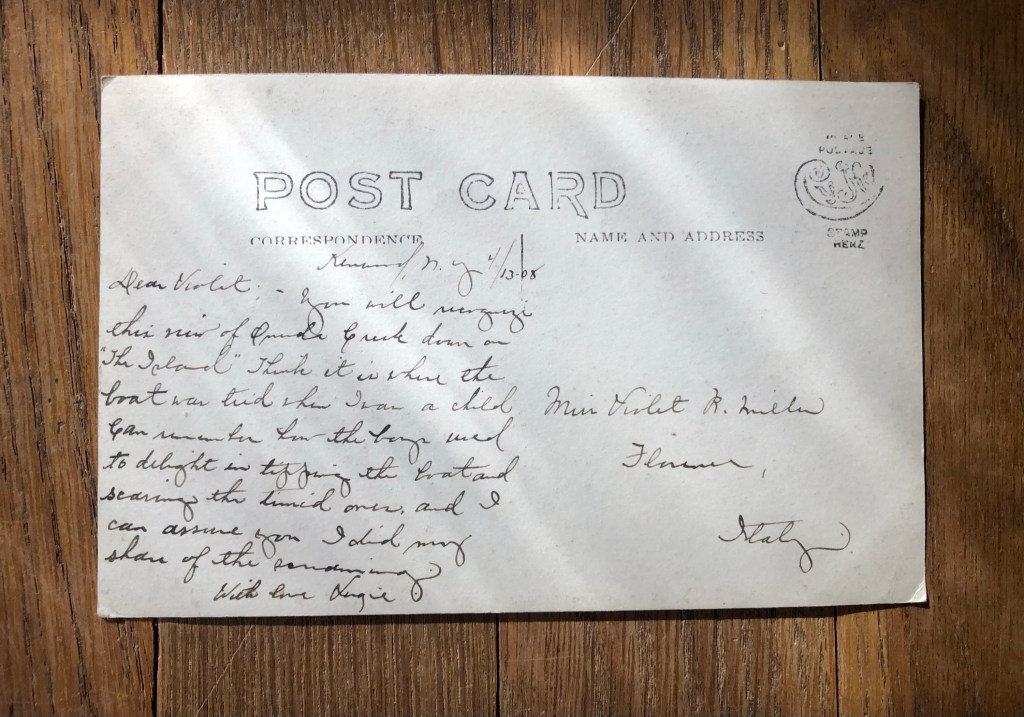 POST CARD
PLACE
POSTAGE
STAMP
HERE
CORRESPONDENCE
NAME AND ADDRESS
Kenwood, N. Y. 4/13-08
Dear Violet; - You will recognize
this view of Oneida Creek down on
"The Island" Think it is where the
boat was tied when I was a child
Can remember how the boys used
to delight in tipping the boat and
scaring the timid ones, and I
can assure you I did my
share of the screaming
With love
Miss Violet R. Miller
Florence,
Italy.